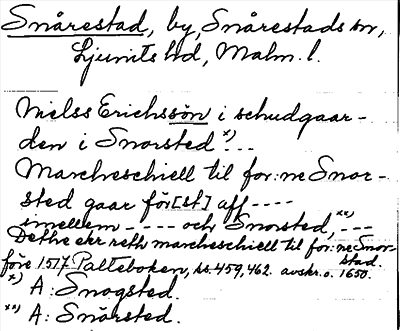 Snårestad, by, Snårestads sn,
Ljunits hd, Malm. l.
Nielss Erichssøn i schudgaar-
den i Snorsted x) - -
Marcheschiell til for:ne Snor-
sted gaar för[st] aff - - - -
imellem - - - - och Snorsted, xx) - - -
Dethe ehr reth marcheschiell til for:ne Snor-
stad.
före 1517 Palteboken, ss. 459, 462. avskr. o. 1650.
x) A: Snogsted.
xx) A: Snårsted.